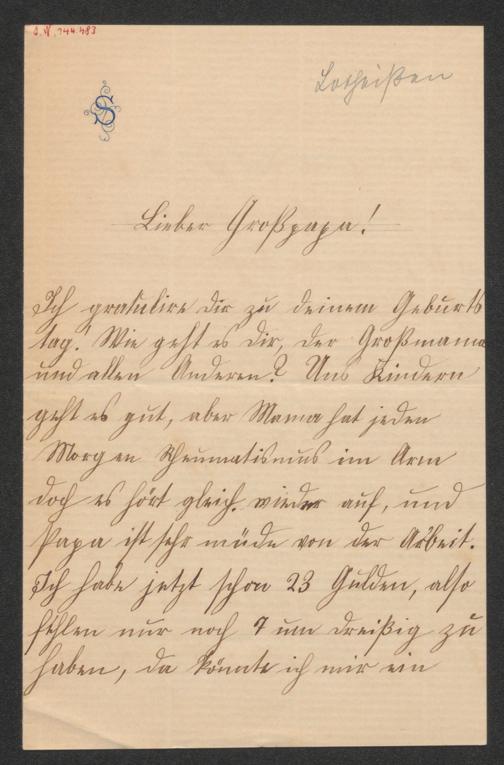 J. N. 144.483
S
Lotheißen
Lieber Großpapa!
Ich gratulire dir zu deinem Geburts
tag! Wie geht es dir, der Großmama
und allen Anderen? Uns Kindern
geht es gut, aber Mama hat jeden
Morgen Rheumatismus im Arm
doch es hört gleich wieder auf, und
Papa ist sehr müde von der Arbeit.
Ich habe jetzt schon 23 Gulden, also
fehlen nur noch 7 um dreißig zu
haben, da könnte ich mir ein